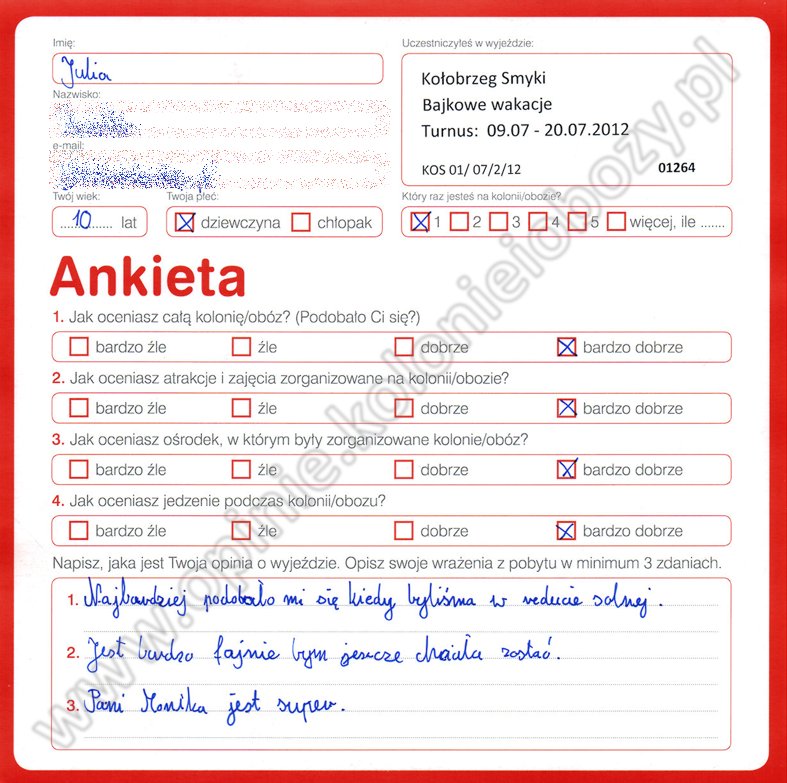 Imię:
Julia
Nazwisko:
e-mail:
Twój wiek:
10 lat
Twoja płeć:
dziewczyna chłopak
Uczestniczyłeś w wyjeździe:
Kołobrzeg Smyki
Bajkowe wakacje
Turnus: 09.07 - 20.07.2012
KOS 01/ 07/2/12 01264
Który raz jesteś na kolonii/obozie?
1 2 3 4 5 więcej, ile .......
Ankieta
1. Jak oceniasz całą kolonię/obóz? (Podobało Ci się?)
bardzo źle źle dobrze bardzo dobrze
2. Jak oceniasz atrakcje i zajęcia zorganizowane na kolonii/obozie?
bardzo źle źle dobrze bardzo dobrze
3. Jak oceniasz ośrodek, w którym były zorganizowane kolonie/obóz?
bardzo źle źle dobrze bardzo dobrze
4. Jak oceniasz jedzenie podczas kolonii/obozu?
bardzo źle źle dobrze bardzo dobrze
Napisz, jaka jest Twoja opinia o wyjeździe. Opisz swoje wrażenia z pobytu w minimum 3 zdaniach.
1. Najbardziej podobało mi się kiedy byliśma w reducie solnej.
2. Jest bardzo fajnie bym jeszcze chciała zostać.
3. Pani Monika jest super.
www.opinie.kolonieiobozy.pl